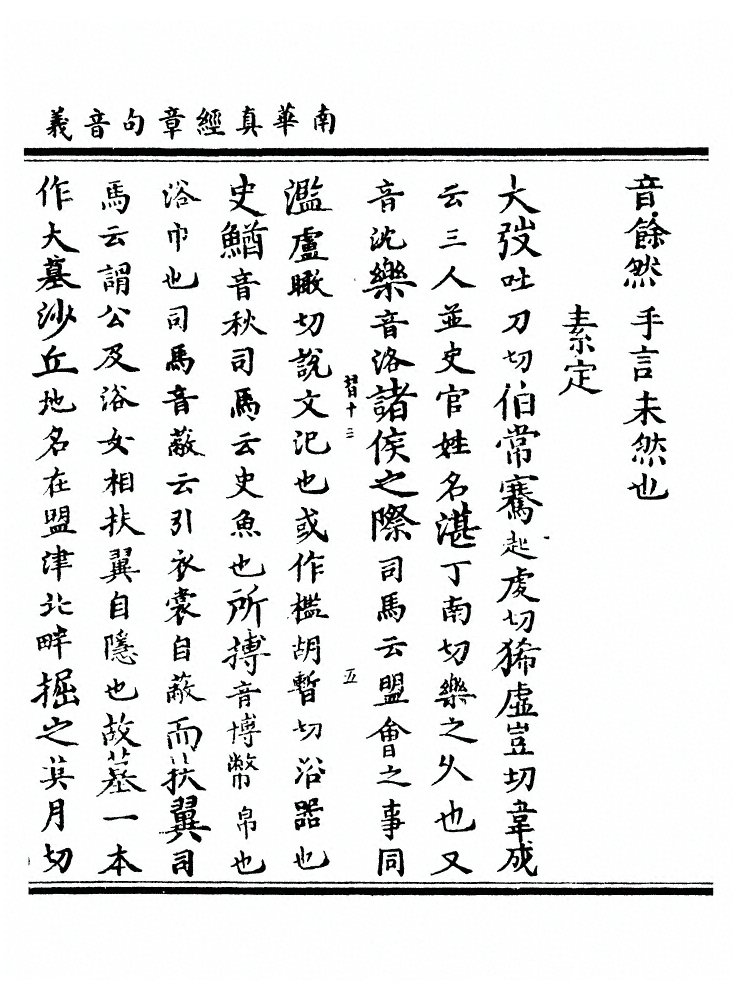 南華真經章句音義
音餘然 手言未然也
素定
大弢吐刀切伯常騫起虔切狶虛豈切韋成
云三人並史官姓名湛丁南切樂之久也又
音沈樂音洛諸侯之際司馬云盟會之事同
十三
五
濫盧瞰切說文氾也或作檻胡暫切浴器也
史鰌音秋司馬云史魚也所搏音博幣帛也
浴巾也司馬音蔽云引衣裳自蔽而扶翼司
馬云謂公及浴女相扶翼自隱也故墓一本
作大墓沙丘地名在盟津北畔掘之其月切